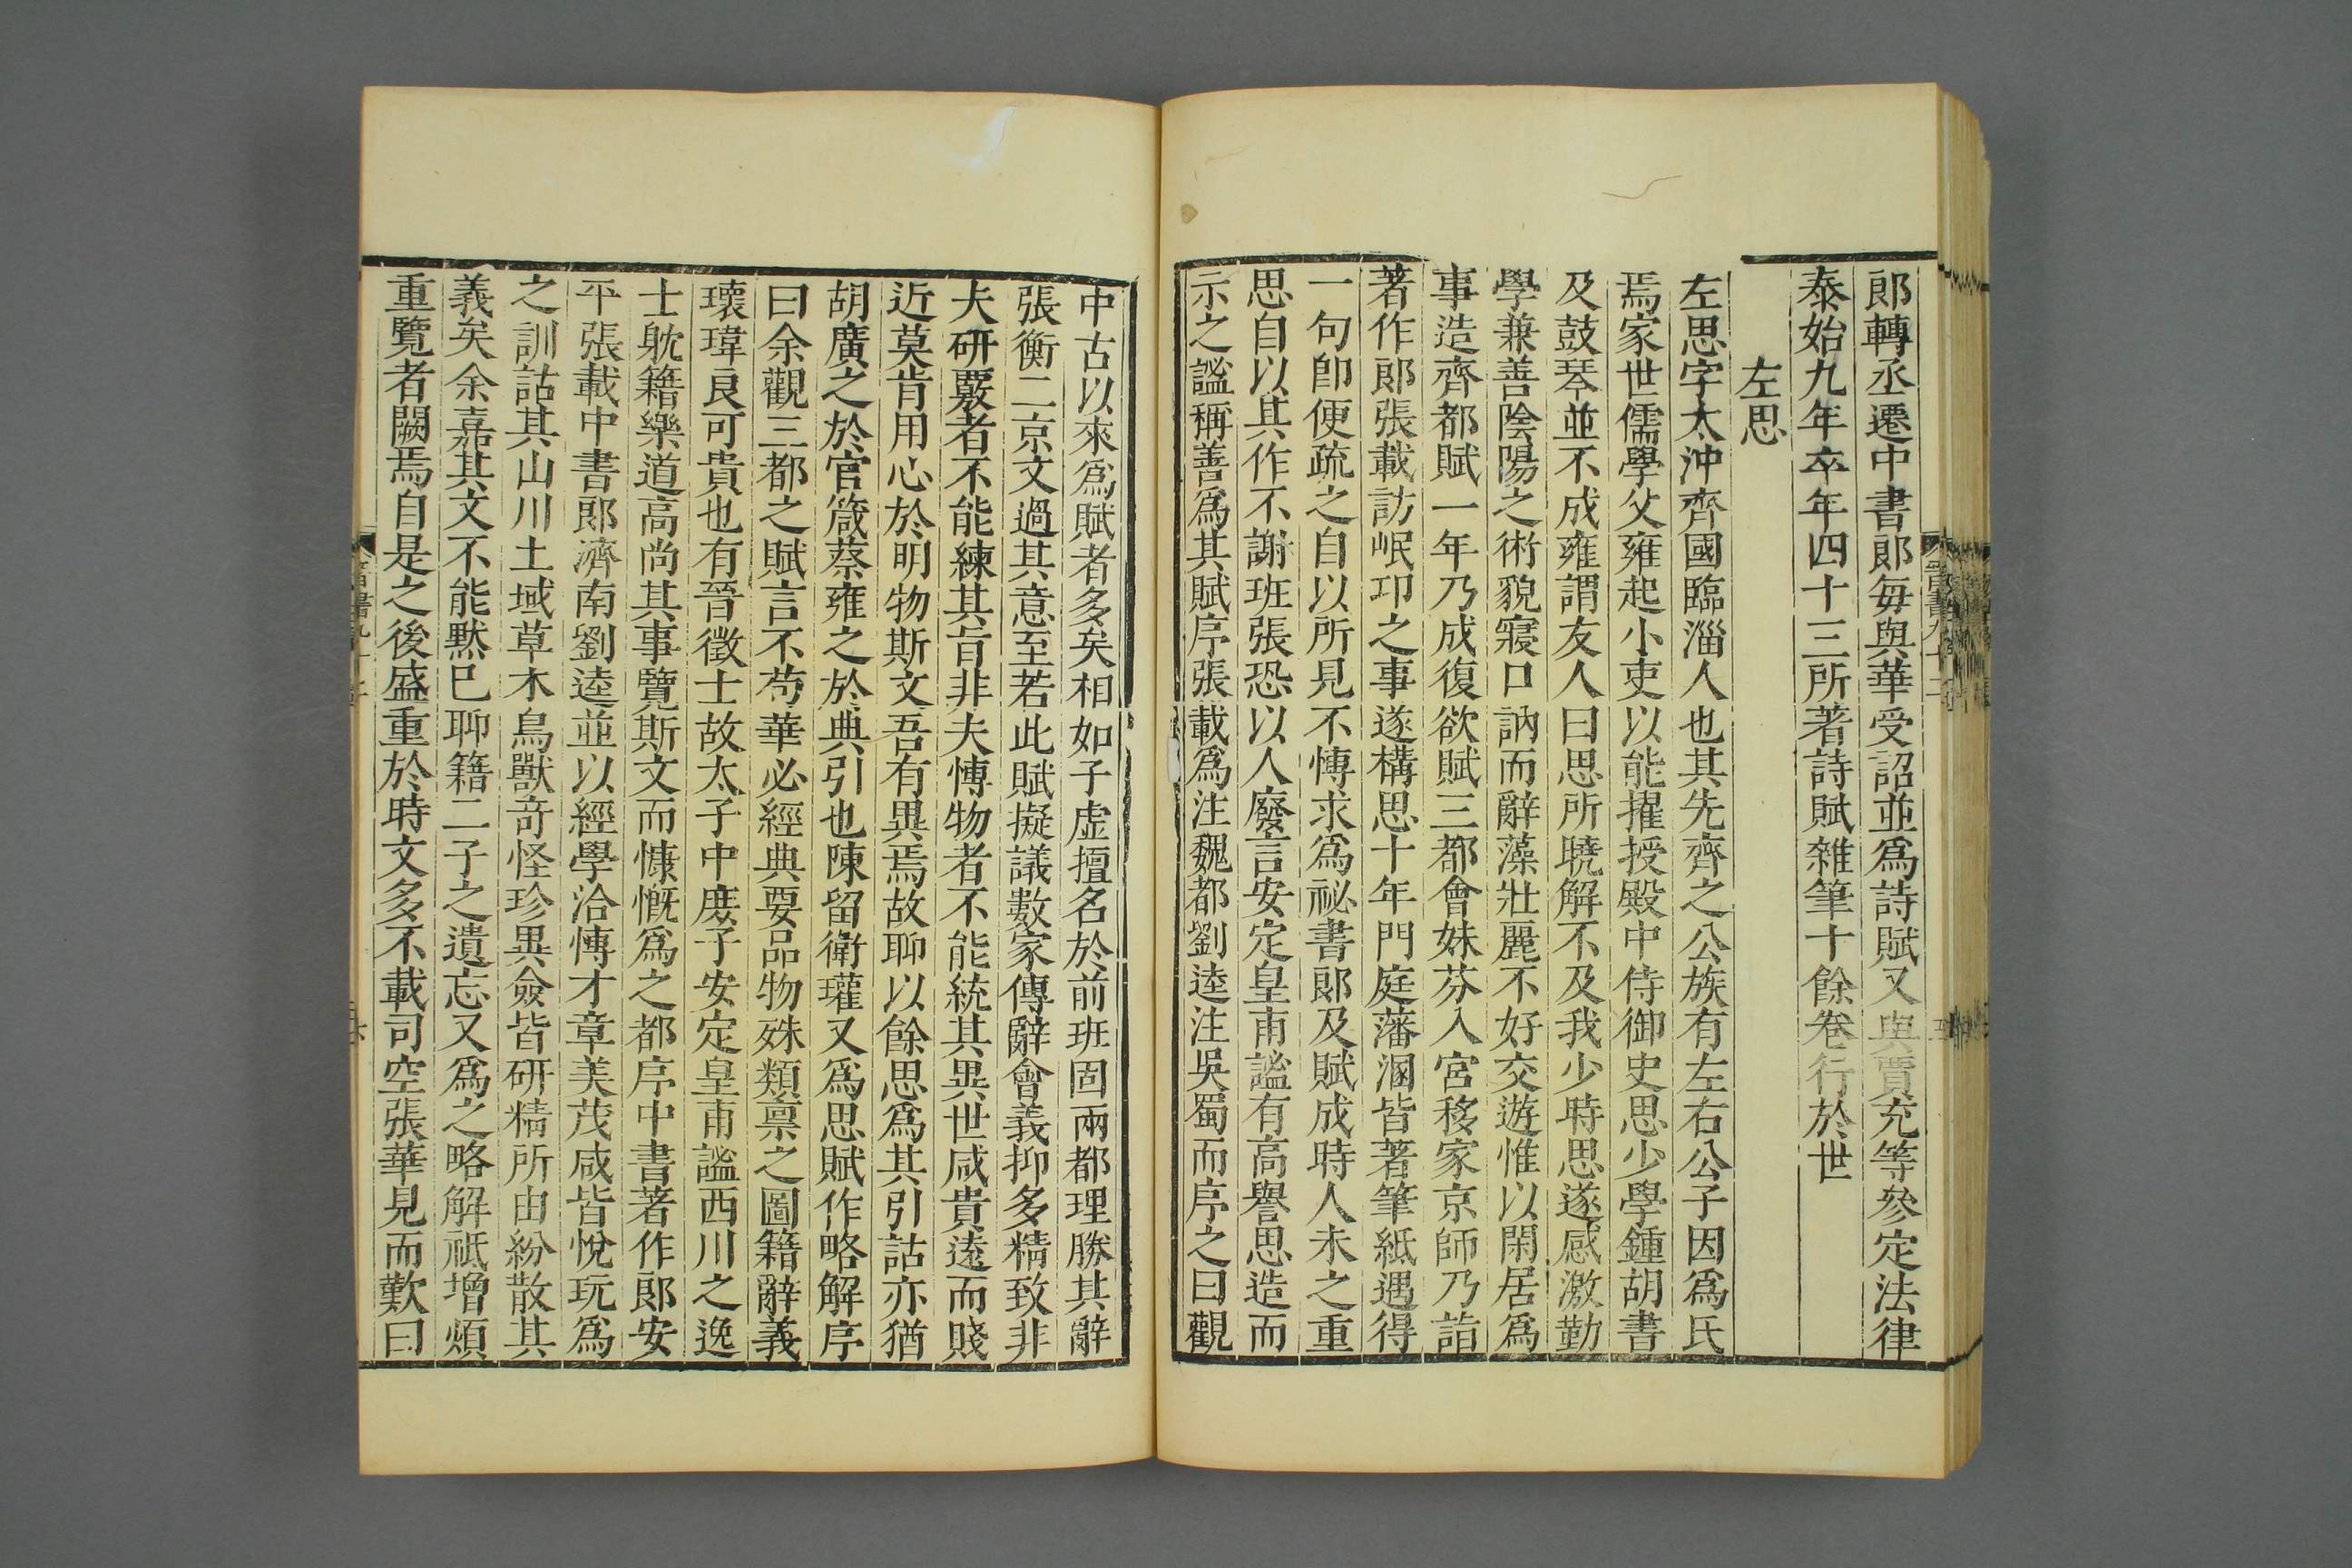 郎轉丞遷中書郎每與華受詔並爲詩賦又與賈充等參定法律
泰始九年卒年四十三所著詩賦雜筆十餘卷行於世
左思
左思字太沖齊國臨淄人也其先齊之公族有左右公子因爲氏
焉家世儒學父雍起小吏以能擢授殿中侍御史思少學鍾胡書
及鼓琴並不成雍謂友人曰思所曉解不及我少時思遂感激勤
學兼善陰陽之術貌寢口訥而辭藻壯麗不好交遊惟以閑居爲
事造齊都賦一年乃成復欲賦三都會妹芬入宮移家京師乃詣
著作郎張載訪岷卭之事遂構思十年門庭藩溷皆著筆紙遇得
一句卽便疏之自以所見不愽求爲祕書郎及賦成時人未之重
思自以其作不謝班張恐以人廢言安定皇甫謐有高譽思造而
示之謐稱善爲其賦序張載爲注魏都劉逵注吳蜀而序之曰觀
中古以來爲賦者多矣相如子虛擅名於前班固兩都理勝其辭
張衡二京文過其意至若此賦擬議數家傳辭會義抑多精致非
夫研覈者不能練其旨非夫愽物者不能統其異世咸貴遠而賤
近莫肯用心於明物斯文吾有異焉故聊以餘思爲其引詁亦猶
胡廣之於官箴蔡雍之於典引也陳留衛瓘又爲思賦作略解序
曰余觀三都之賦言不苟華必經典要品物殊類禀之圖籍辭義
瓌瑋良可貴也有晉徵士故太子中庶子安定皇甫謐西川之逸
士躭籍樂道高尚其事覽斯文而慷慨爲之都序中書著作郎安
平張載中書郎濟南劉逵並以經學洽愽才章美茂咸皆悅玩爲
之訓詁其山川土域草木鳥獸奇怪珍異僉皆研精所由紛散其
義矣余嘉其文不能默已聊籍二子之遺忘又爲之略解祗增煩
重覽者闕焉自是之後盛重於時文多不載司空張華見而歎曰